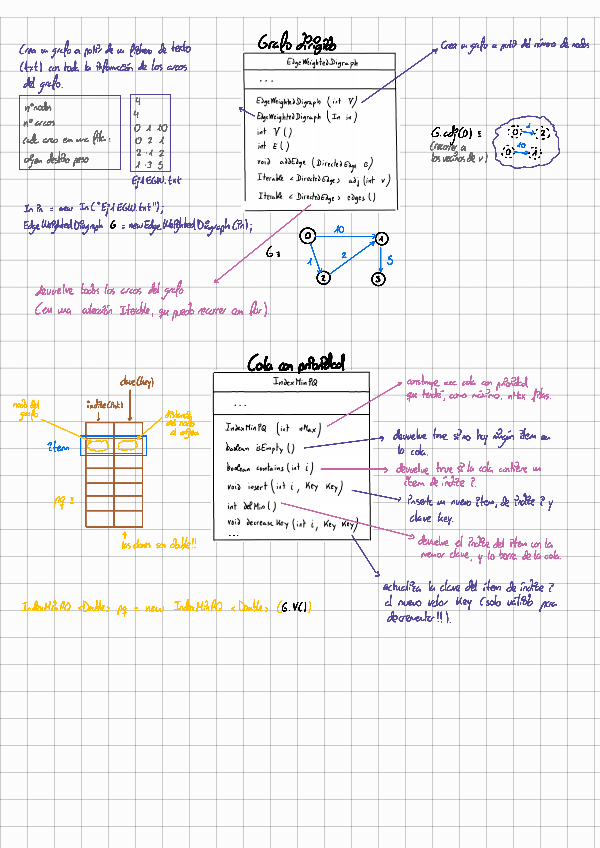 Grafo dirigido
Crea un grafo a partir de un fichero de texto
(txt) con toda la información de los arcos
del grafo.
nº nodos
nº arcos
cada arco en una fila:
origen destino peso
4
4
0 1 10
0 2 1
2 1 2
1 3 5
Ej1EGW.txt
In in = new In("Ej1EGW.txt");
EdgeWeightedDigraph G = new EdgeWeightedDigraph(in);
EdgeWeightedDigraph
...
EdgeWeightedDigraph (int V)
EdgeWeightedDigraph (In in)
int V()
int E()
void addEdge (DirectedEdge e)
Iterable <DirectedEdge> adj (int v)
Iterable <DirectedEdge> edges ()
Crea un grafo a partir del número de nodos
G.adj(0) =
(recorrer a
los vecinos de v)
0 1 2
0 10 1
G =
0 10 1
1 2 5
2 3
devuelve todos los arcos del grafo
(en una colección Iterable, que puedo recorrer con for).
Cola con prioridad
clave (key)
índice (int)
nodo del
grafo
distancia
del nodo
al origen
ítem
pq =
las claves son double!!
IndexMinPQ
...
IndexMinPQ (int nMax)
boolean isEmpty ()
boolean contains (int i)
void insert (int i, Key key)
int delMin ()
void decreaseKey (int i, Key key)
...
construye una cola con prioridad
que tendrá, como máximo, nMax filas.
devuelve true si no hay ningún ítem en
la cola.
devuelve true si la cola contiene un
ítem de índice i.
inserta un nuevo ítem, de índice i y
clave key.
devuelve el índice del ítem con la
menor clave, y lo borra de la cola.
actualiza la clave del ítem de índice i
al nuevo valor key (solo válido para
decrementar!!).
IndexMinPQ <Double> pq = new IndexMinPQ <Double> (G.V())